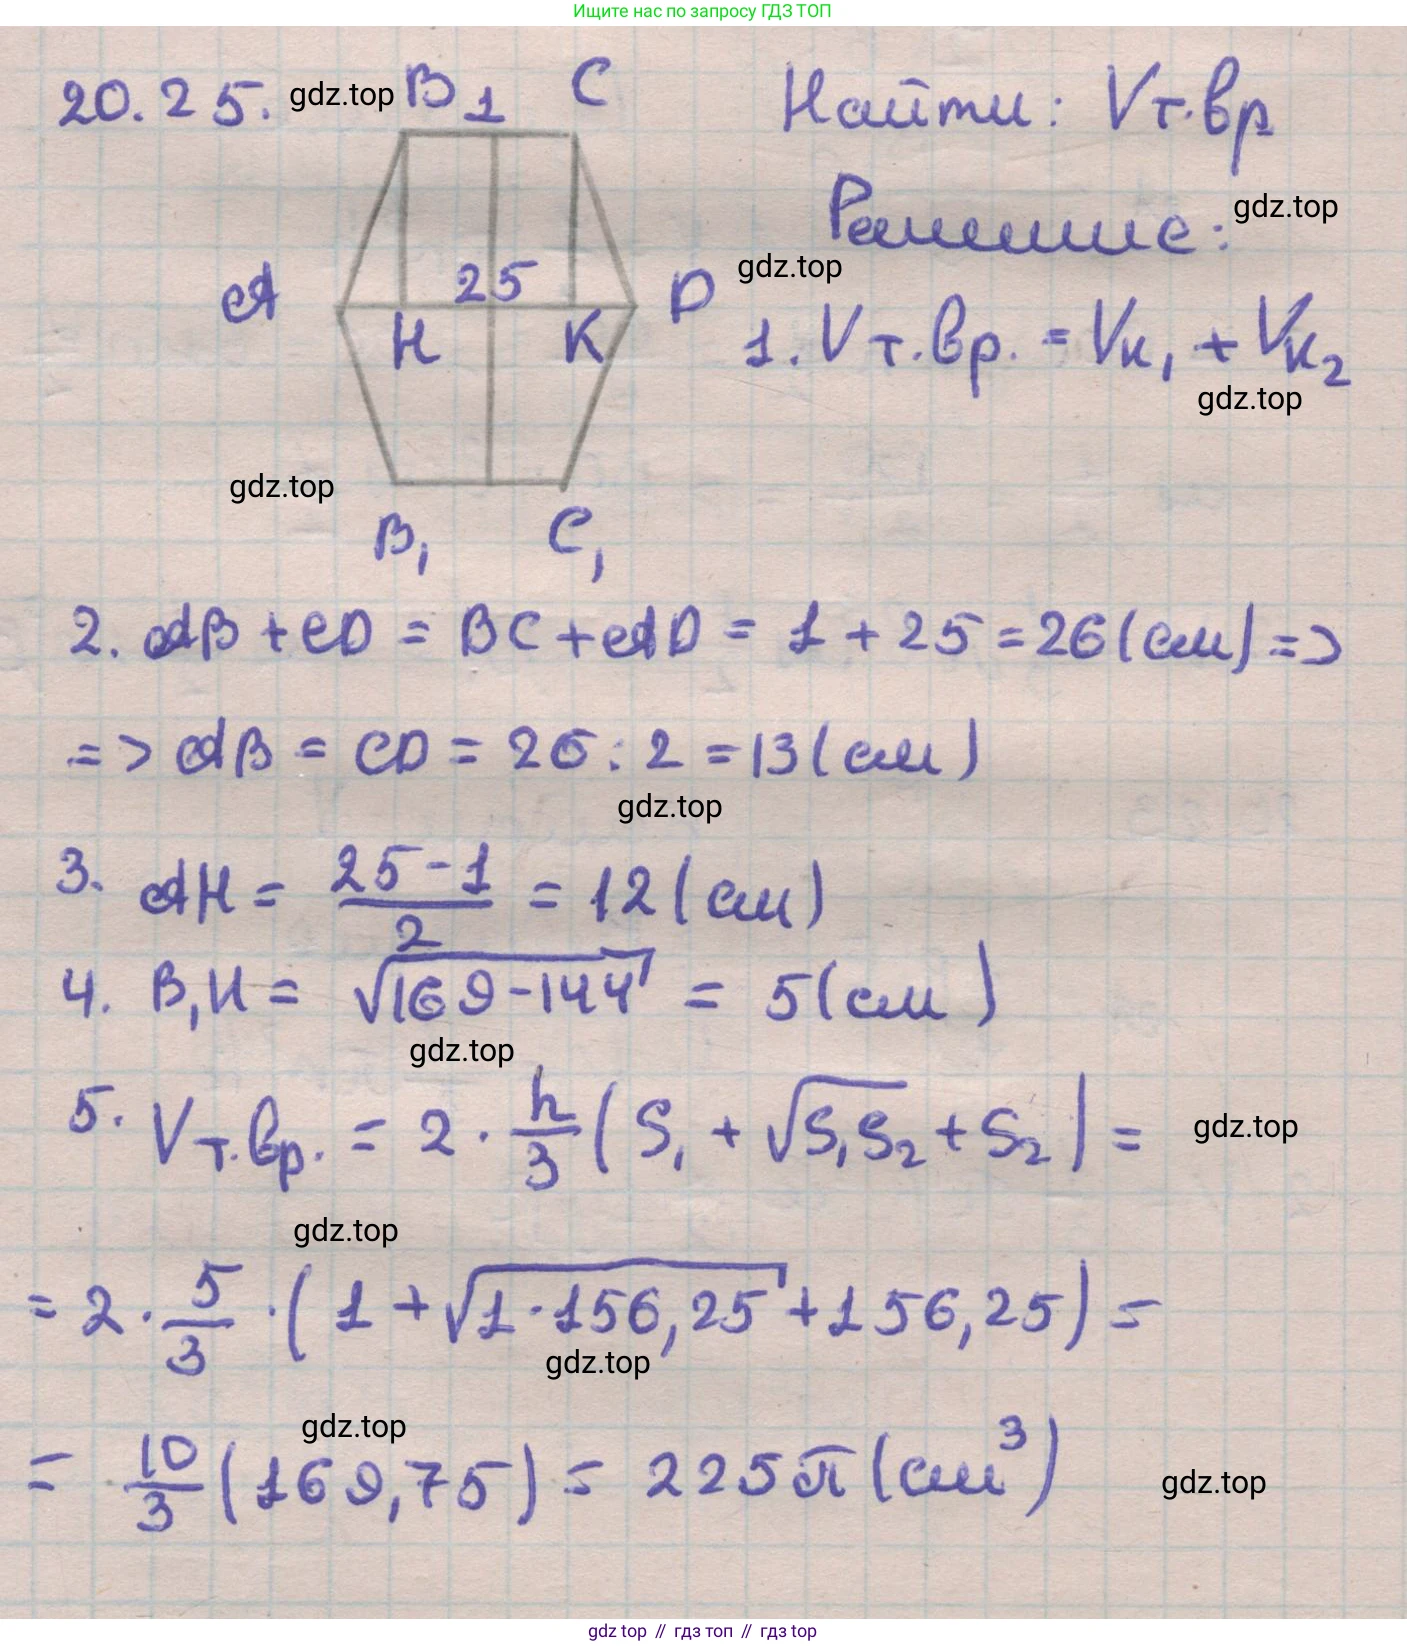 Ищите нас по запросу ГДЗ ТОП
20.25. gdz.top B 1 C Найти: Vт.вр
Решение: gdz.top
gdz.top
A 25 D
H K 1. Vт.вр. = Vк₁ + Vк₂
gdz.top
gdz.top
B₁ C₁
2. AB + CD = BC + AD = 1 + 25 = 26 (см) =>
=> AB = CD = 26 : 2 = 13 (см)
gdz.top
3. AH = \frac{25-1}{2} = 12 (см)
4. B₁H = √(169-144) = 5 (см)
gdz.top
5. Vт.вр. = 2 · \frac{h}{3} (S₁ + √(S₁S₂) + S₂) = gdz.top
gdz.top
= 2 · \frac{5}{3} · (1 + √(1 · 156,25) + 156,25) =
gdz.top
gdz.top
= \frac{10}{3} (169,75) = 225π (см³) gdz.top
gdz top // гдз топ // gdz top